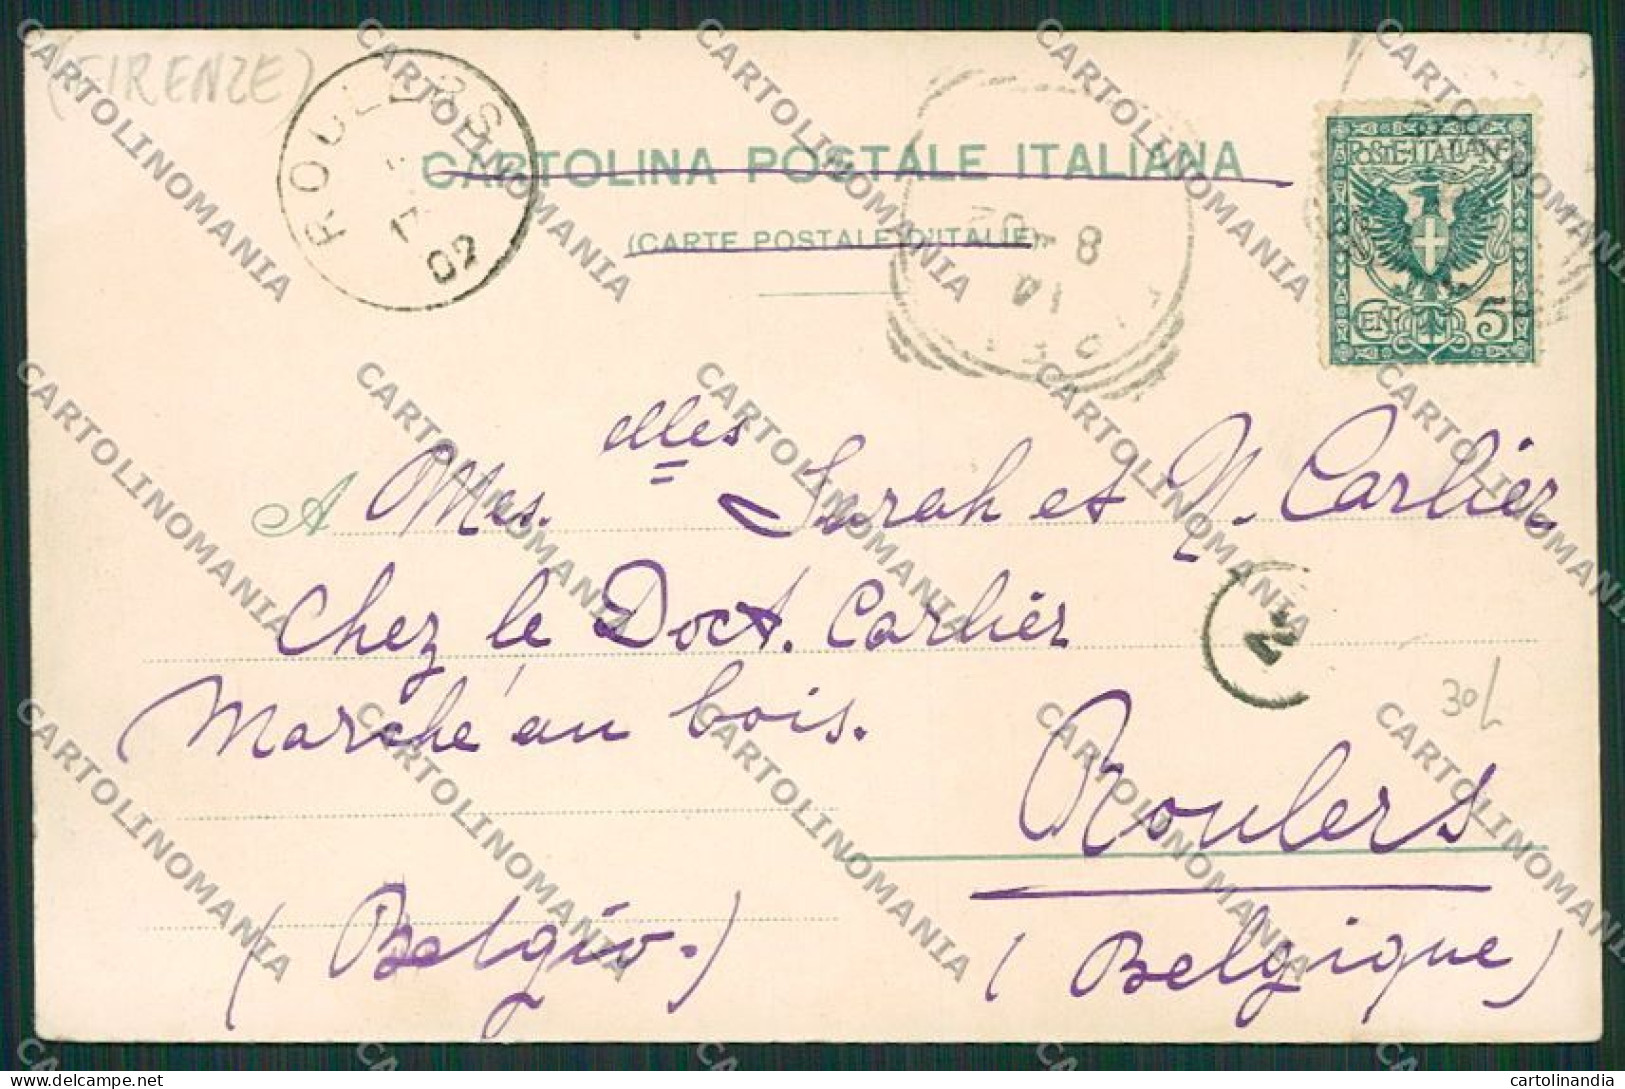 (FIRENZE)
ROULERS
17
02
CARTOLINA POSTALE ITALIANA
(CARTE POSTALE D'ITALIE)
8 - 02
14
POSTE·ITALIANE
CENT. 5
A Mes.elles Sarah et N. Carlier
Chez le Doct. Carlier
Marché au bois.
Roulers
(Belgio.)
(Belgique)
N
CARTOLINOMANIA
delcampe.net
cartolinandia